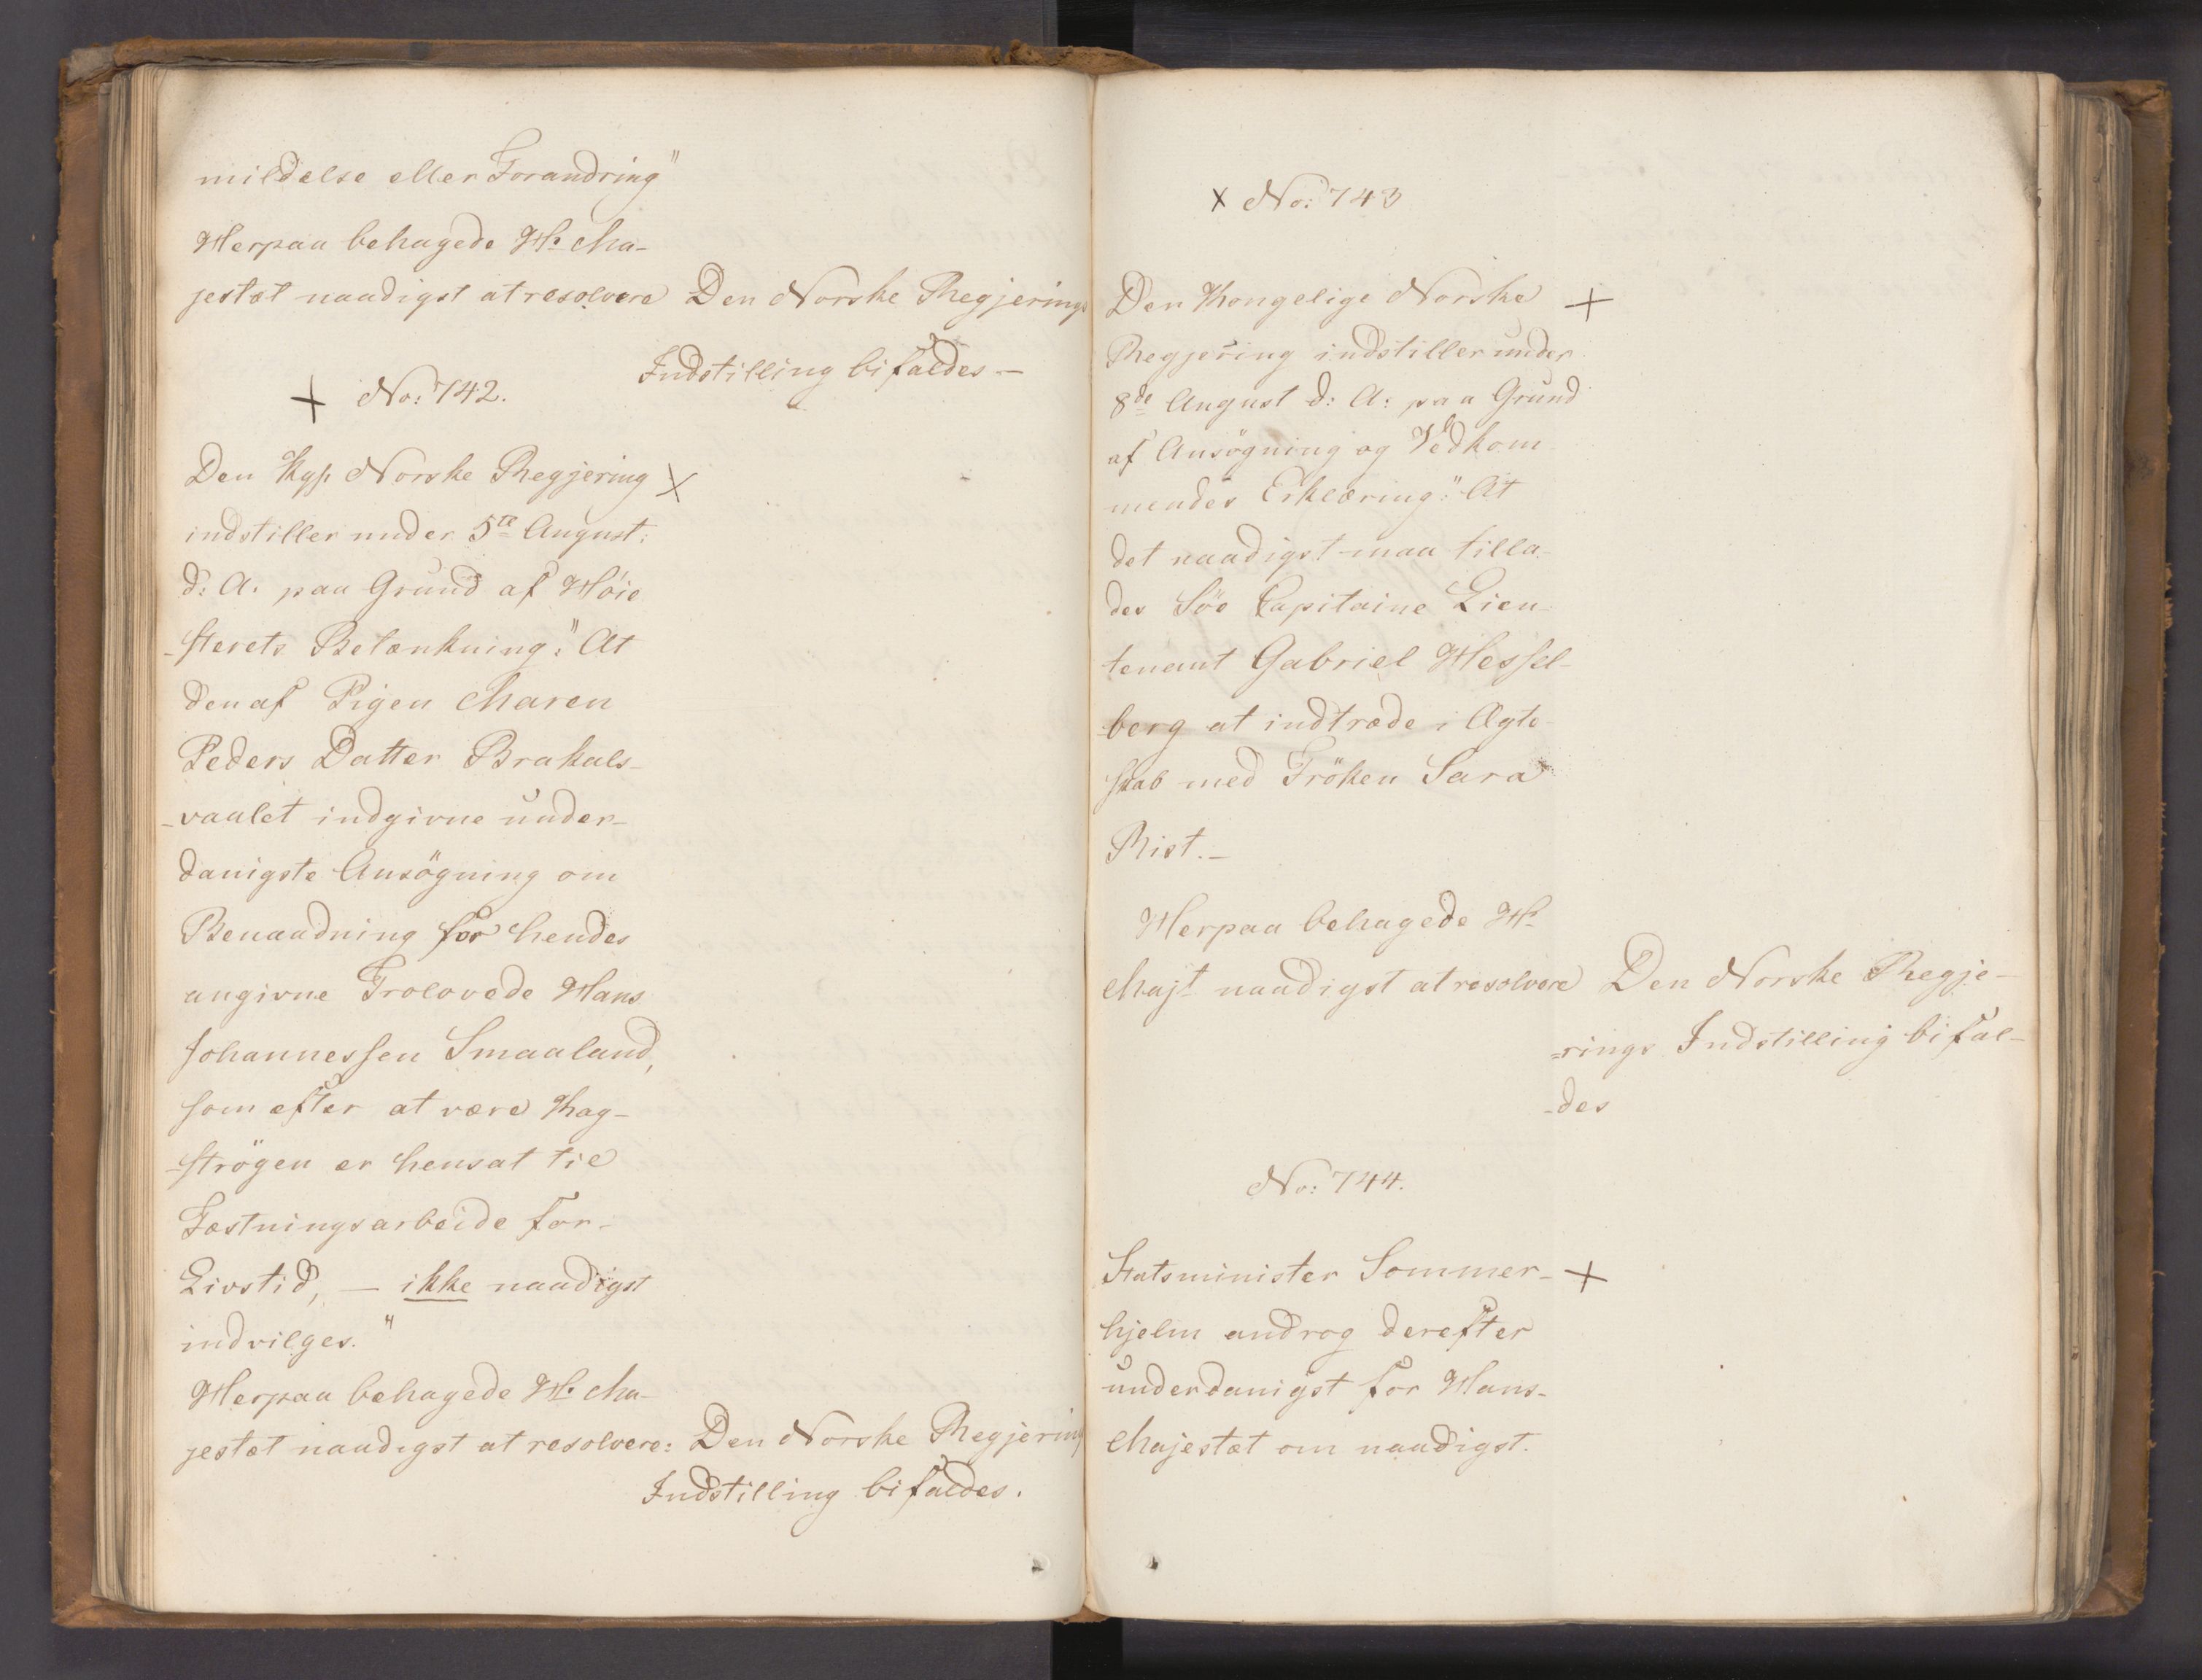 mildelse eller Forandring"
Herpaa behagede Hs Ma-
jestæt naadigst at resolvere Den Norske Regjerings
Indstilling bifaldes —
+ No: 742.
Den Kgl. Norske Regjering X
indstiller under 5te August.
d: A. paa Grund af Höie
-sterets Betænkning: "At
den af Pigen Maren
Peders Datter Brakals-
-vaalet indgivne under-
danigste Ansögning om
Benaadning for hendes
angivne Trolovede Hans
Johannessen Smaaland,
som efter at være Kag-
-strögen er hensat til
Fæstningsarbeide for
Livstid, — ikke naadigst
indvilges."
Herpaa behagede Hs Ma-
jestæt naadigst at resolvere: Den Norske Regjering
Indstilling bifaldes.
X No: 743
Den Kongelige Norske +
Regjering indstiller under
8de August d: A: paa Grund
af Ansögning og Vedkom
mendes Erklæring: "At
det naadigst maa tilla-
des Söe Capitaine Lieu-
tenant Gabriel Hessel-
-berg at indtræde i Ægte-
skab med Fröken Sara
Rist.—
Herpaa behagede Hs
Majt naadigst at resolvere Den Norske Regje-
-rings Indstilling bifal-
-des
No: 744.
Statsminister Sommer- +
hjelm androg derefter
underdanigst for Hans-
Majestæt om naadigst.